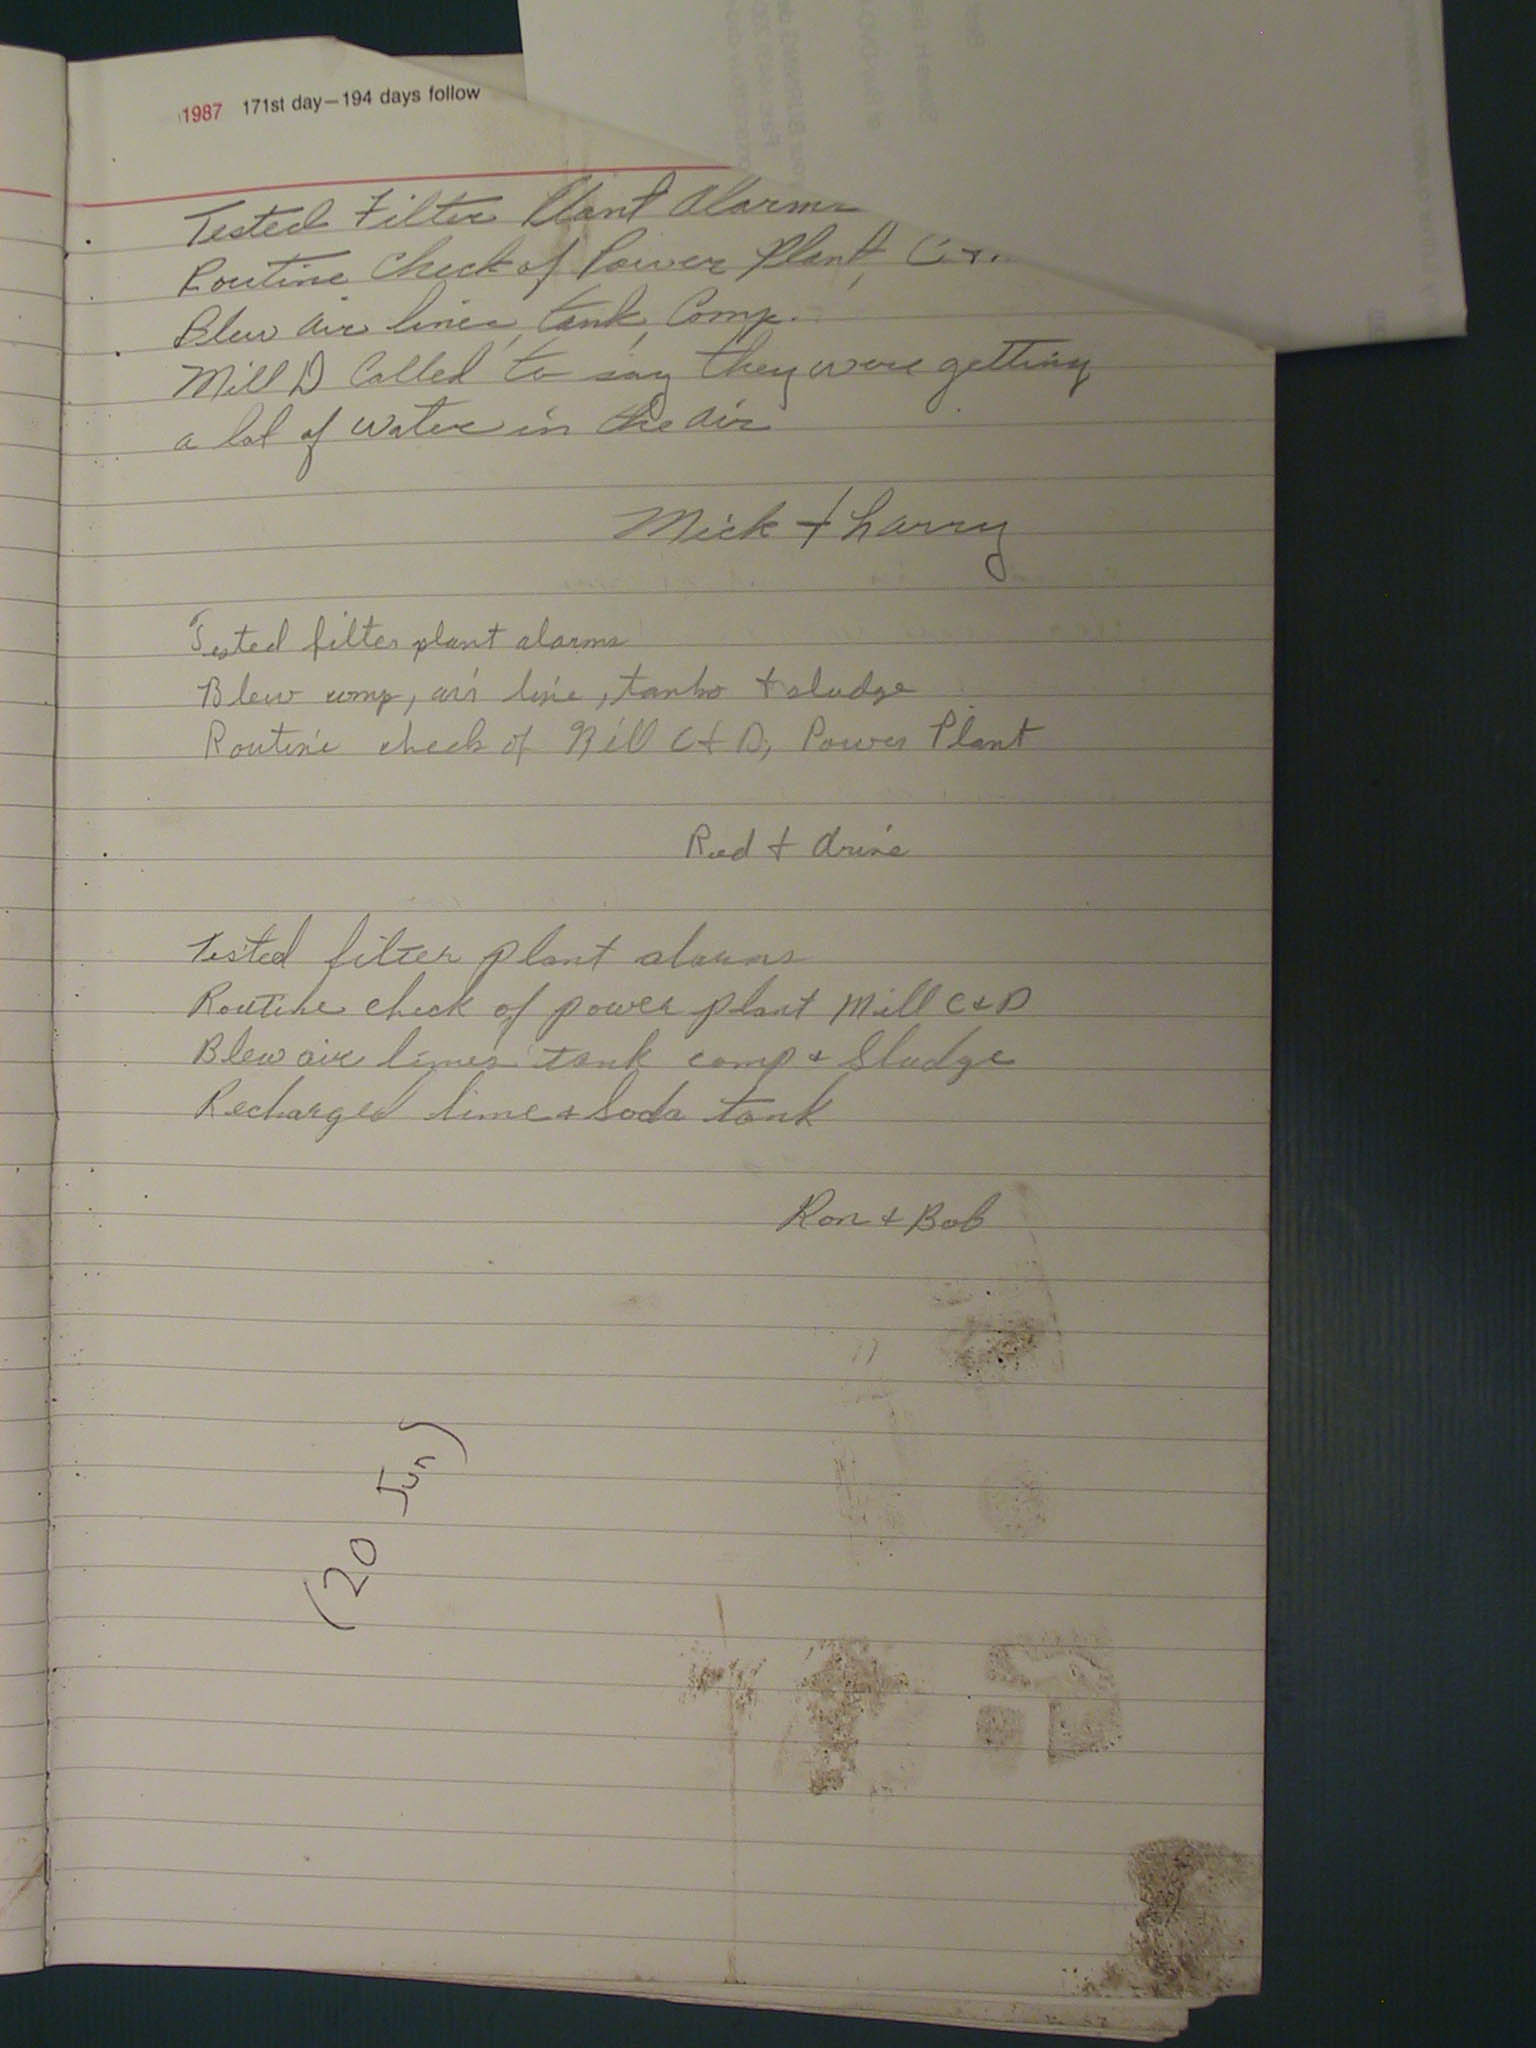 1987 171st day—194 days follow
Tested Filter Plant Alarms
Routine Check of Power Plant, C+
Blew air lines, tank, Comp.
Mill D Called to say they were getting
a lot of water in the air
Mick + Larry
Tested filter plant alarms
Blew comp, air line, tanks + sludge
Routine check of Mill C + D, Power Plant
Red +
Tested filter plant alarms
Routine check of power plant Mill C + D
Blew air lines tank comp + Sludge
Recharged lime + Soda tank
Ron + Bob
(20 Jun)